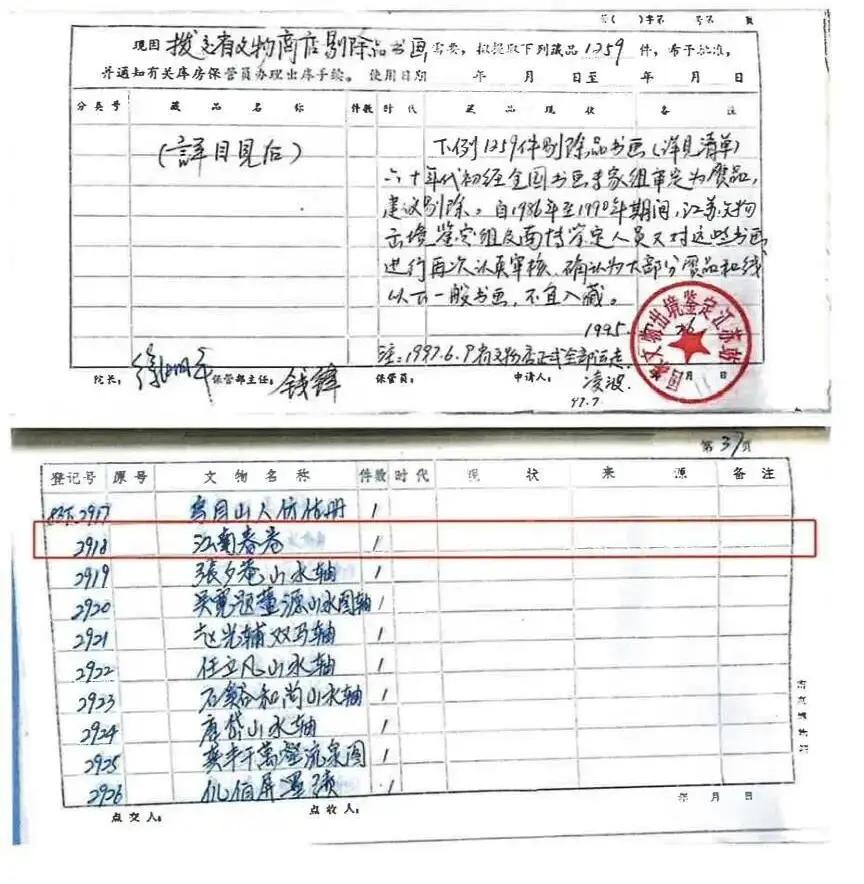 第( )字第 号第 页
现因 拨交省文物商店剔除品书画 需要，拟提取下列藏品 1259 件，希予批准，
并通知有关库房保管员办理出库手续。 使用日期 年 月 日至 年 月 日
分类号 藏品名称 件数 时代 藏品现状 备注
(詳目見后)
下列1259件剔除品书画(详见清单)
六十年代初经全国书画专家组审定为赝品，
建议剔除。自1986年至1990年期间，江苏文物
出境鉴定组及南博鉴定人员又对这些书画
进行再次认真审核，确认为大部分赝品和线
以下一般书画，不宜入藏。
1995
注：1997.6.9省文物店正式全部运走
院长： 保管部主任： 钱锋 保管员： 申请人： 凌波 月 日
97.7.
文物出境鉴定江苏站
第37页
登记号 原号 文物名称 件数 时代 现状 来源 备注
2917 山人仿古册 1
2918 江南春卷 1
2919 張夕庵山水轴 1
2920 吴寛题董源山水图轴 1
2921 赵光辅双马轴 1
2922 任立凡山水轴 1
2923 石谿和尚山水轴 1
2924 唐岱山水轴 1
2925 千萬壑流泉图 1
2926 1
点交人： 点收人： 年 月 日